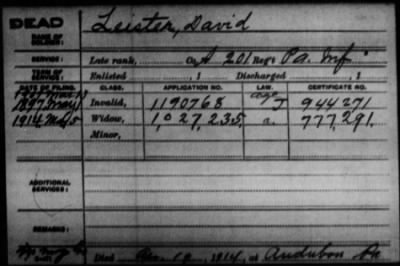 DEAD
Leister, David
NAME OF SOLDIER:
SERVICE: Late rank, Co. A 201 Reg't Pa. Inf.
TERM OF SERVICE: Enlisted , 1 Discharged , 1
DATE OF FILING. CLASS. APPLICATION NO. LAW. CERTIFICATE NO.
1907
1897 May Invalid, 1190768 J 944271
1914 Widow, 1,027,235, a. 777,291,
Minor,
ADDITIONAL SERVICES:
REMARKS:
Died 19, 1914, at Audubon Pa